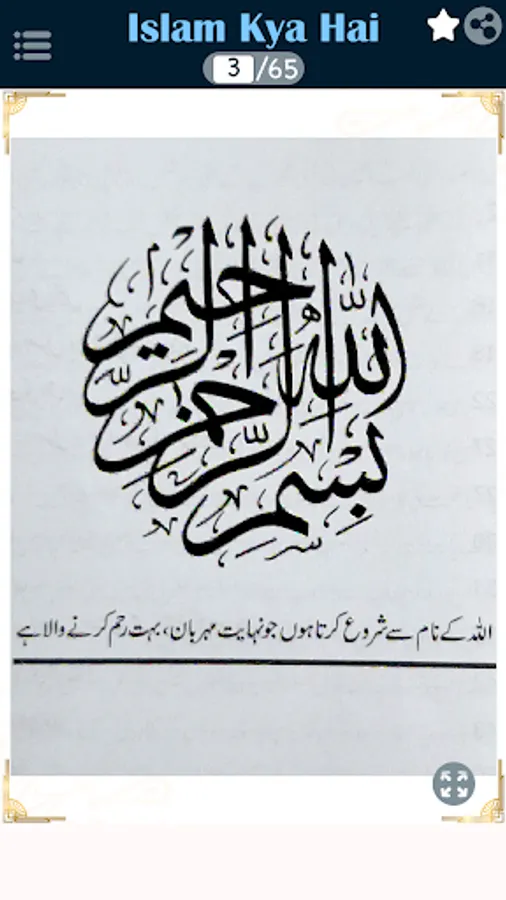 Islam Kya Hai
3/65
بسم الله الرحمن الرحيم
اللہ کے نام سے شروع کرتا ہوں جو نہایت مہربان، بہت رحم کرنے والا ہے